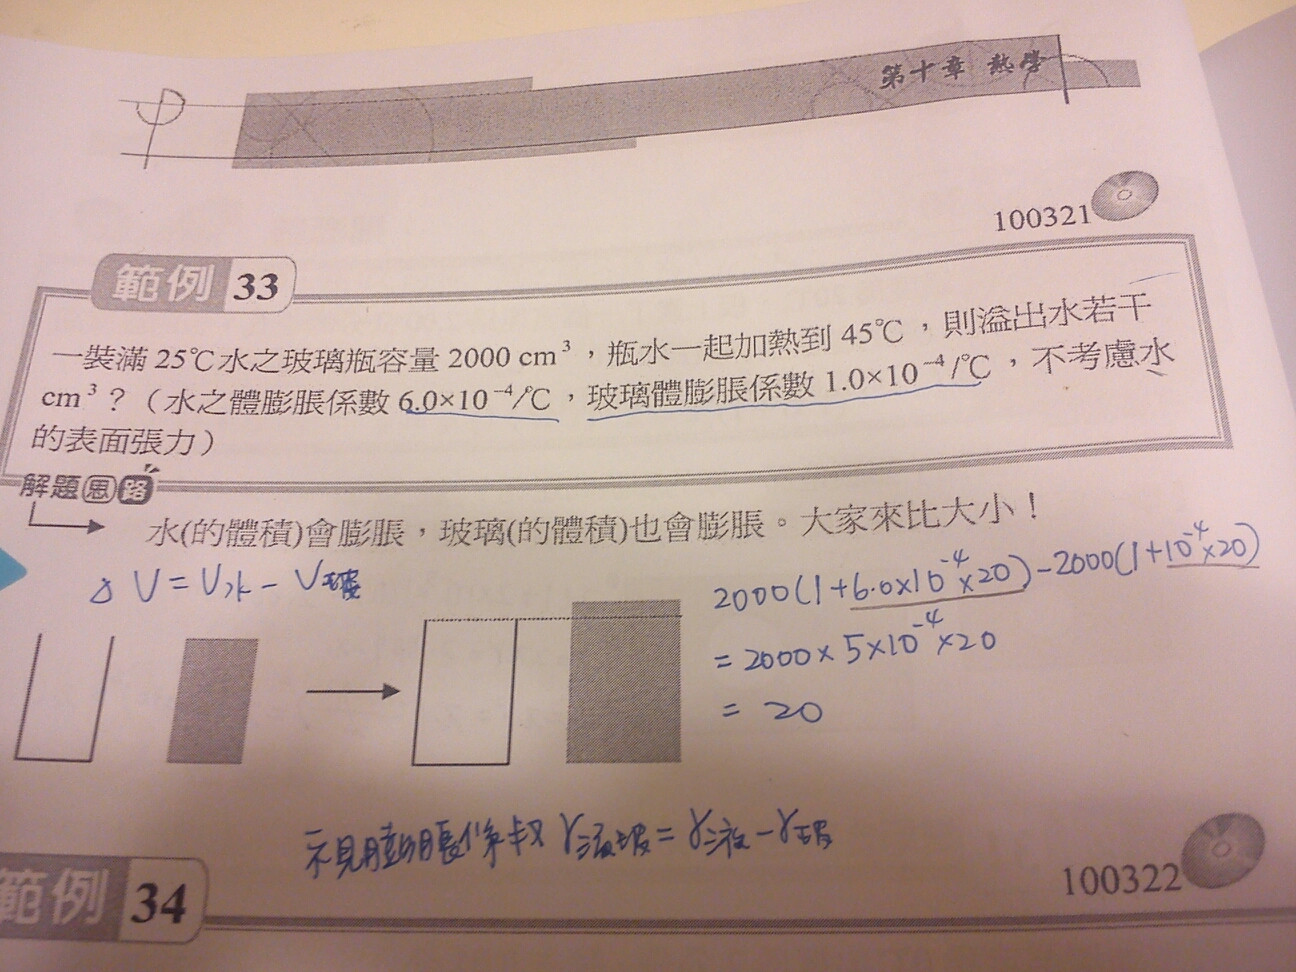 第十章 熱學
100321
範例 33
一裝滿 25℃水之玻璃瓶容量 2000 cm³，瓶水一起加熱到 45℃，則溢出水若干
cm³？（水之體膨脹係數 6.0×10⁻⁴/℃，玻璃體膨脹係數 1.0×10⁻⁴/℃，不考慮水
的表面張力）
解題思路
水(的體積)會膨脹，玻璃(的體積)也會膨脹。大家來比大小！
△V=V水-V玻璃
2000(1+6.0×10⁻⁴×20)-2000(1+10⁻⁴×20)
=2000×5×10⁻⁴×20
=20
示見膨脹係叔 γ液玻=γ液-γ玻
100322
範例 34